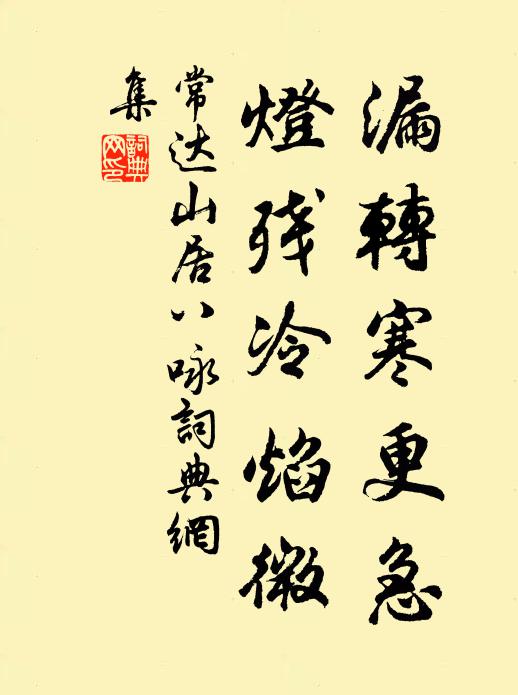 漏轉寒更急
燈残冷焰微
常达山居八咏詞典網
集
詞典
网印